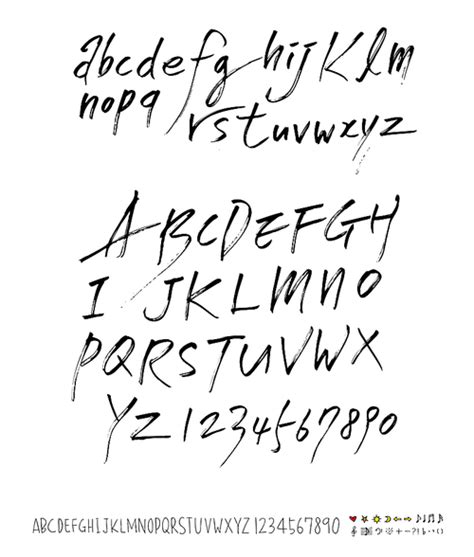 abcdefghijklm
nopqrstuvwxyz
ABCDEFGH
IJKLMNO
PQRSTUVWX
YZ1234567890
ABCDEFGHIJKLMNOPQRSTUVWXYZ1234567890